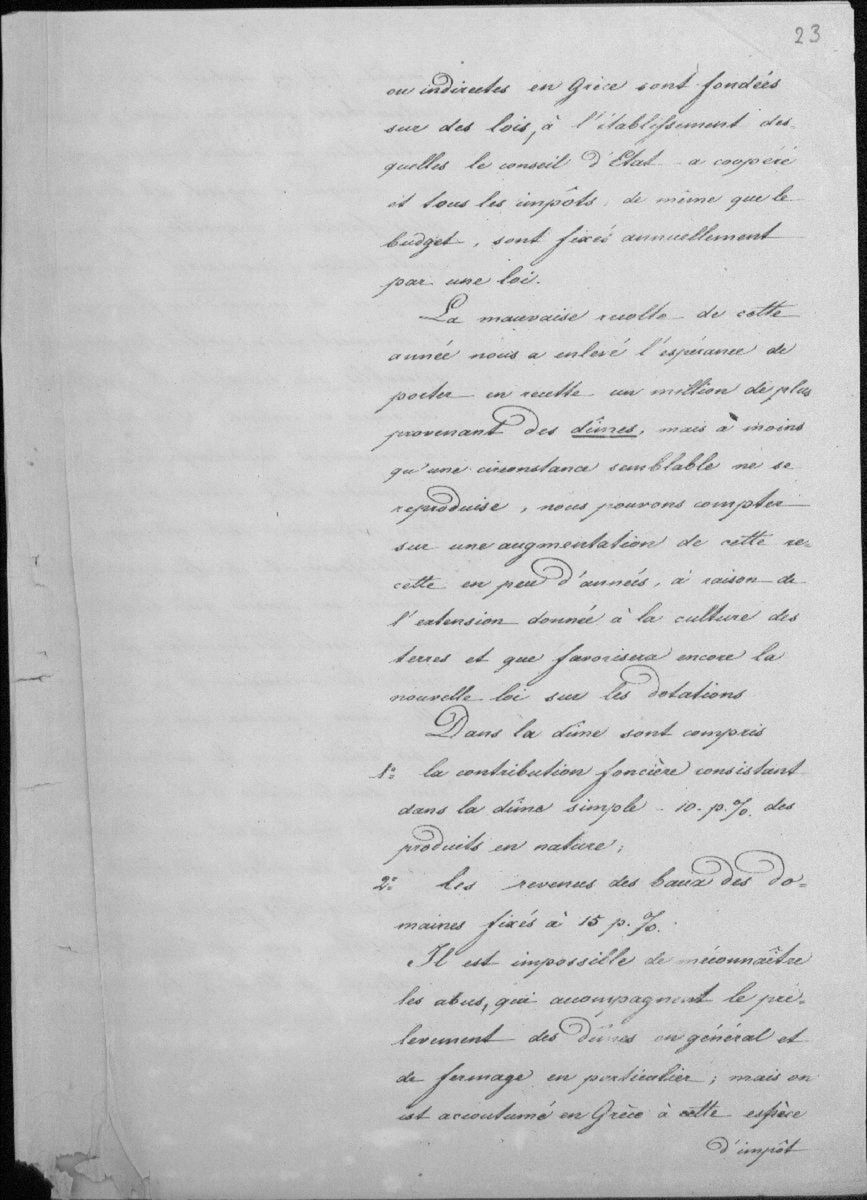 23
ou indirectes en Grèce sont fondées
sur des lois, à l'établissement des-
quelles le conseil d'Etat a coopéré
et tous les impôts, de même que le
budget, sont fixés annuellement
par une loi.
La mauvaise recolte de cette
année nous a enlevé l'espérance de
porter en recette un million de plus
provenant des dîmes, mais à moins
qu'une circonstance semblable ne se
reproduise, nous pouvons compter
sur une augmentation de cette re-
cette en peu d'années, à raison de
l'extension donnée à la culture des
terres et que favorisera encore la
nouvelle loi sur les dotations
Dans la dîme sont compris
1º la contribution foncière consistant
dans la dîme simple - 10 p.% des
produits en nature;
2º les revenus des baux des do-
maines fixés à 15 p.%.
Il est impossible de méconnaître
les abus, qui accompagnent le pré-
levement des dîmes en général et
de fermage en particulier; mais on
est accoutumé en Grèce à cette espèce
d'impôt